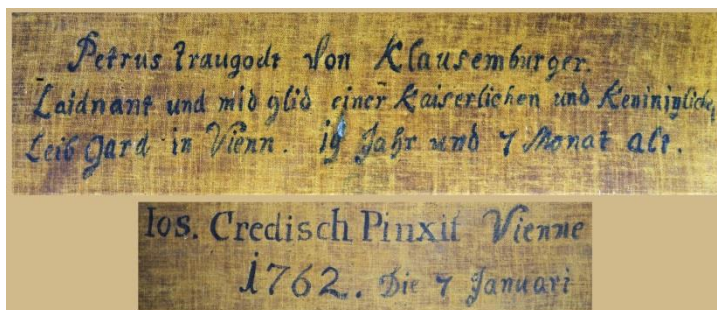 Petrus Traugodt von Klausemburger.
Laidnant und mid glid einer Kaiserlichen und Keniniglichen
Leib Gard in Vienn. 19 Jahr und 7 Monat alt.
Ios. Credisch Pinxit Vienne
1762. Die 7 Januari